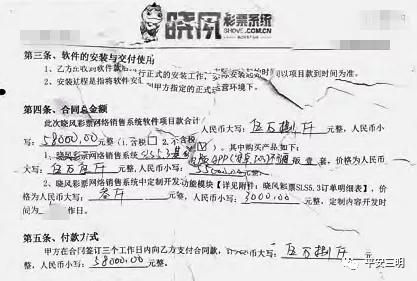 晓风彩票系统
WWW.SHOVE.COM
第三条、软件的安装与交付使用
1、乙方在收到软件款后 行正式的安装工作, 安装 的时 以项目款到时间为准。
2、安装过程是指将软件安 到甲方指定的正式运营环境下。
第四条、合同总金额
此次晓风彩票网络销售系统软件项目款合计 人民币大写:伍万捌仟 元整,人民币小
写:58000.00 元整 (1.含税 2.不含税 )。其中购买产品如下:
1、晓风彩票网络销售系统SLS5.3 版APP( ) 版 壹 套,价格为人民币
大写:伍万伍仟 元整,人民币小写:55000.00 元整。
2、晓风彩票网络销售系统中定制开发功能模块【详见附件:晓风彩票SLS5.3订单明细表】,价
格为人民币大写:叁仟 元整,人民币小写:3000.00 元整,定制内容开发时
间为 作日。
第五条、付款方式
甲方在合同签订三个工作日内向乙方支付合同款, 人民币大写:伍万捌仟 元
整,人民币小写:58000.00 元整。
平安三明